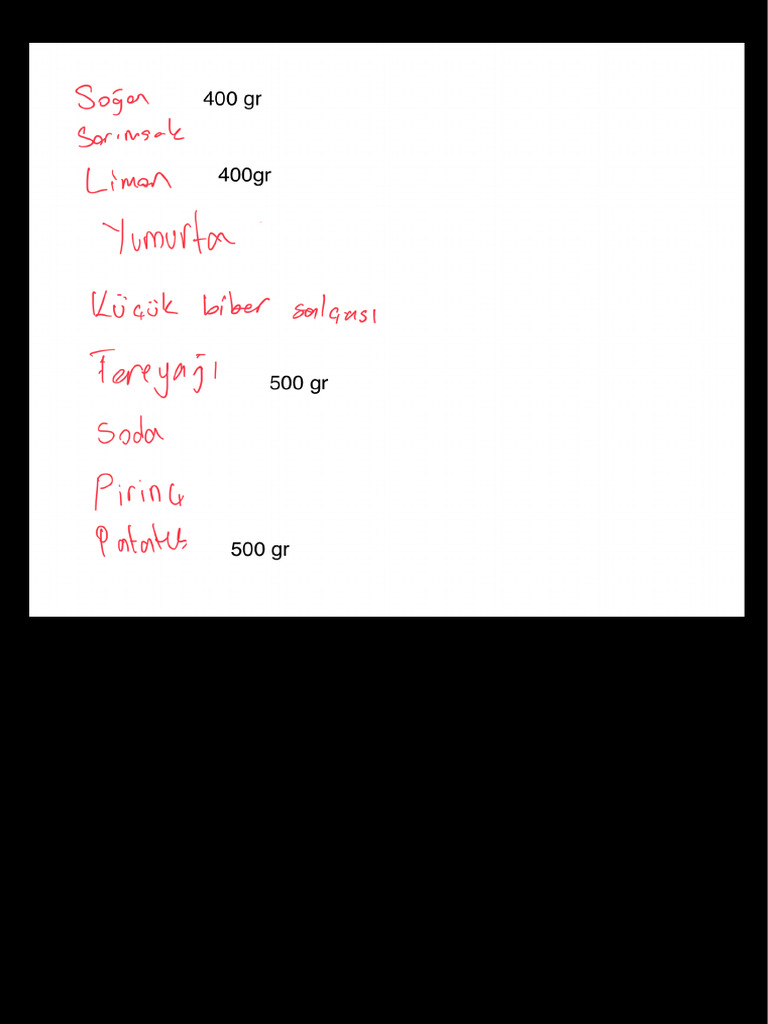 Soğan 400 gr
Sarımsak
Limon 400gr
Yumurta
Küçük biber salçası
Tereyağı 500 gr
Soda
Pirinç
Patates 500 gr